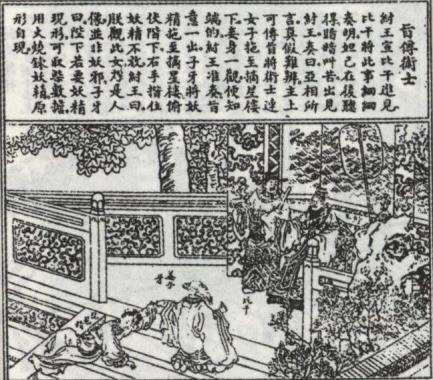 旨傳術士
紂王宣比干進見
比干將此事細細
奏明妲己在後聽
得暗暗叫苦出見
紂王奏曰亞相所
言真假難辨主上
可傳旨將術士連
女子拖至摘星樓
下妾身一觀便知
端的紂王准奏旨
意一出子牙將妖
精拖至摘星樓俯
伏階下右手揝住
妖精不放紂王曰
朕觀此女是人
像並非妖邪子牙
曰陛下若要妖精
現形可取柴數擔
用火燒錬妖精原
形自現
比干
姜子牙